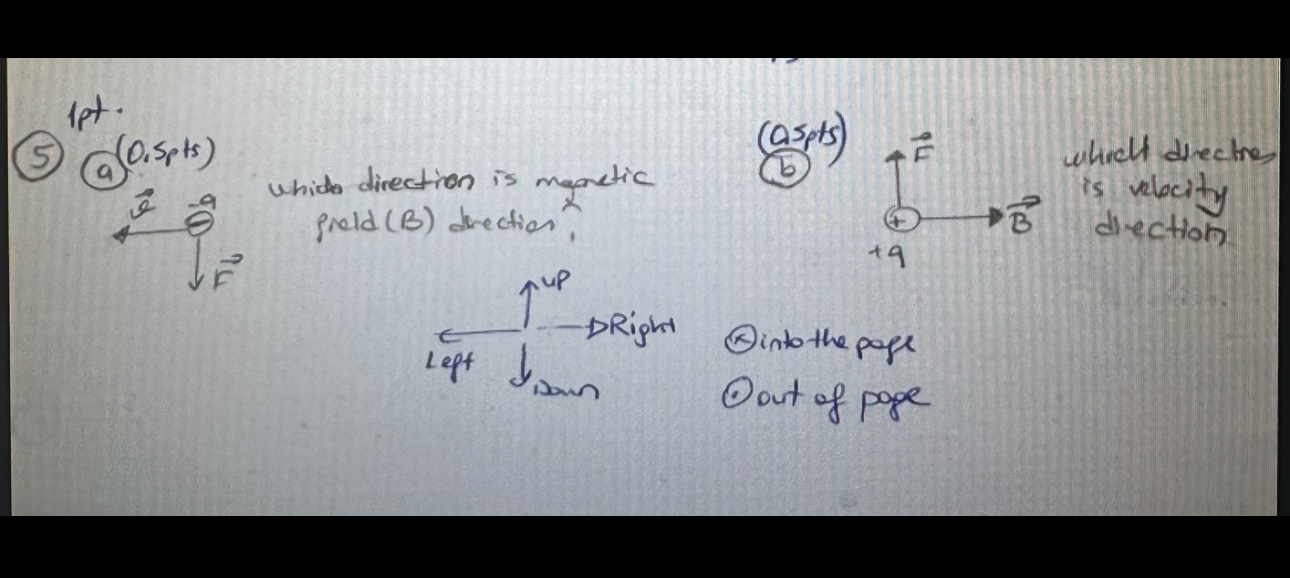 1pt.
5 a (0.5pts)
which direction is magnetic
field (B) direction?
v -q
F
(0.5pts)
b
F
B
+q
which direction
is velocity
direction
up
Left Right
Down
x into the page
. out of page